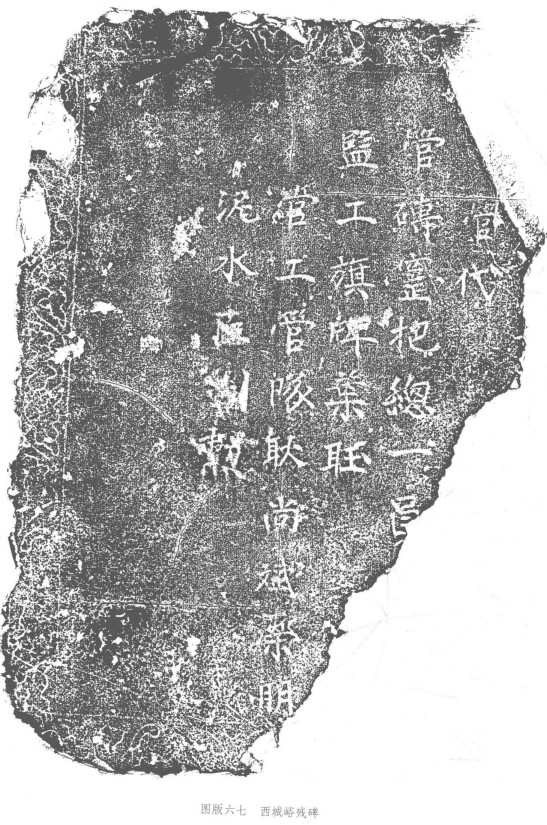 管代
管磚窰把總一員
監工旗牌葉
管工管隊耿尚斌明
泥水匠劉勲
图版六七 西城峪残碑